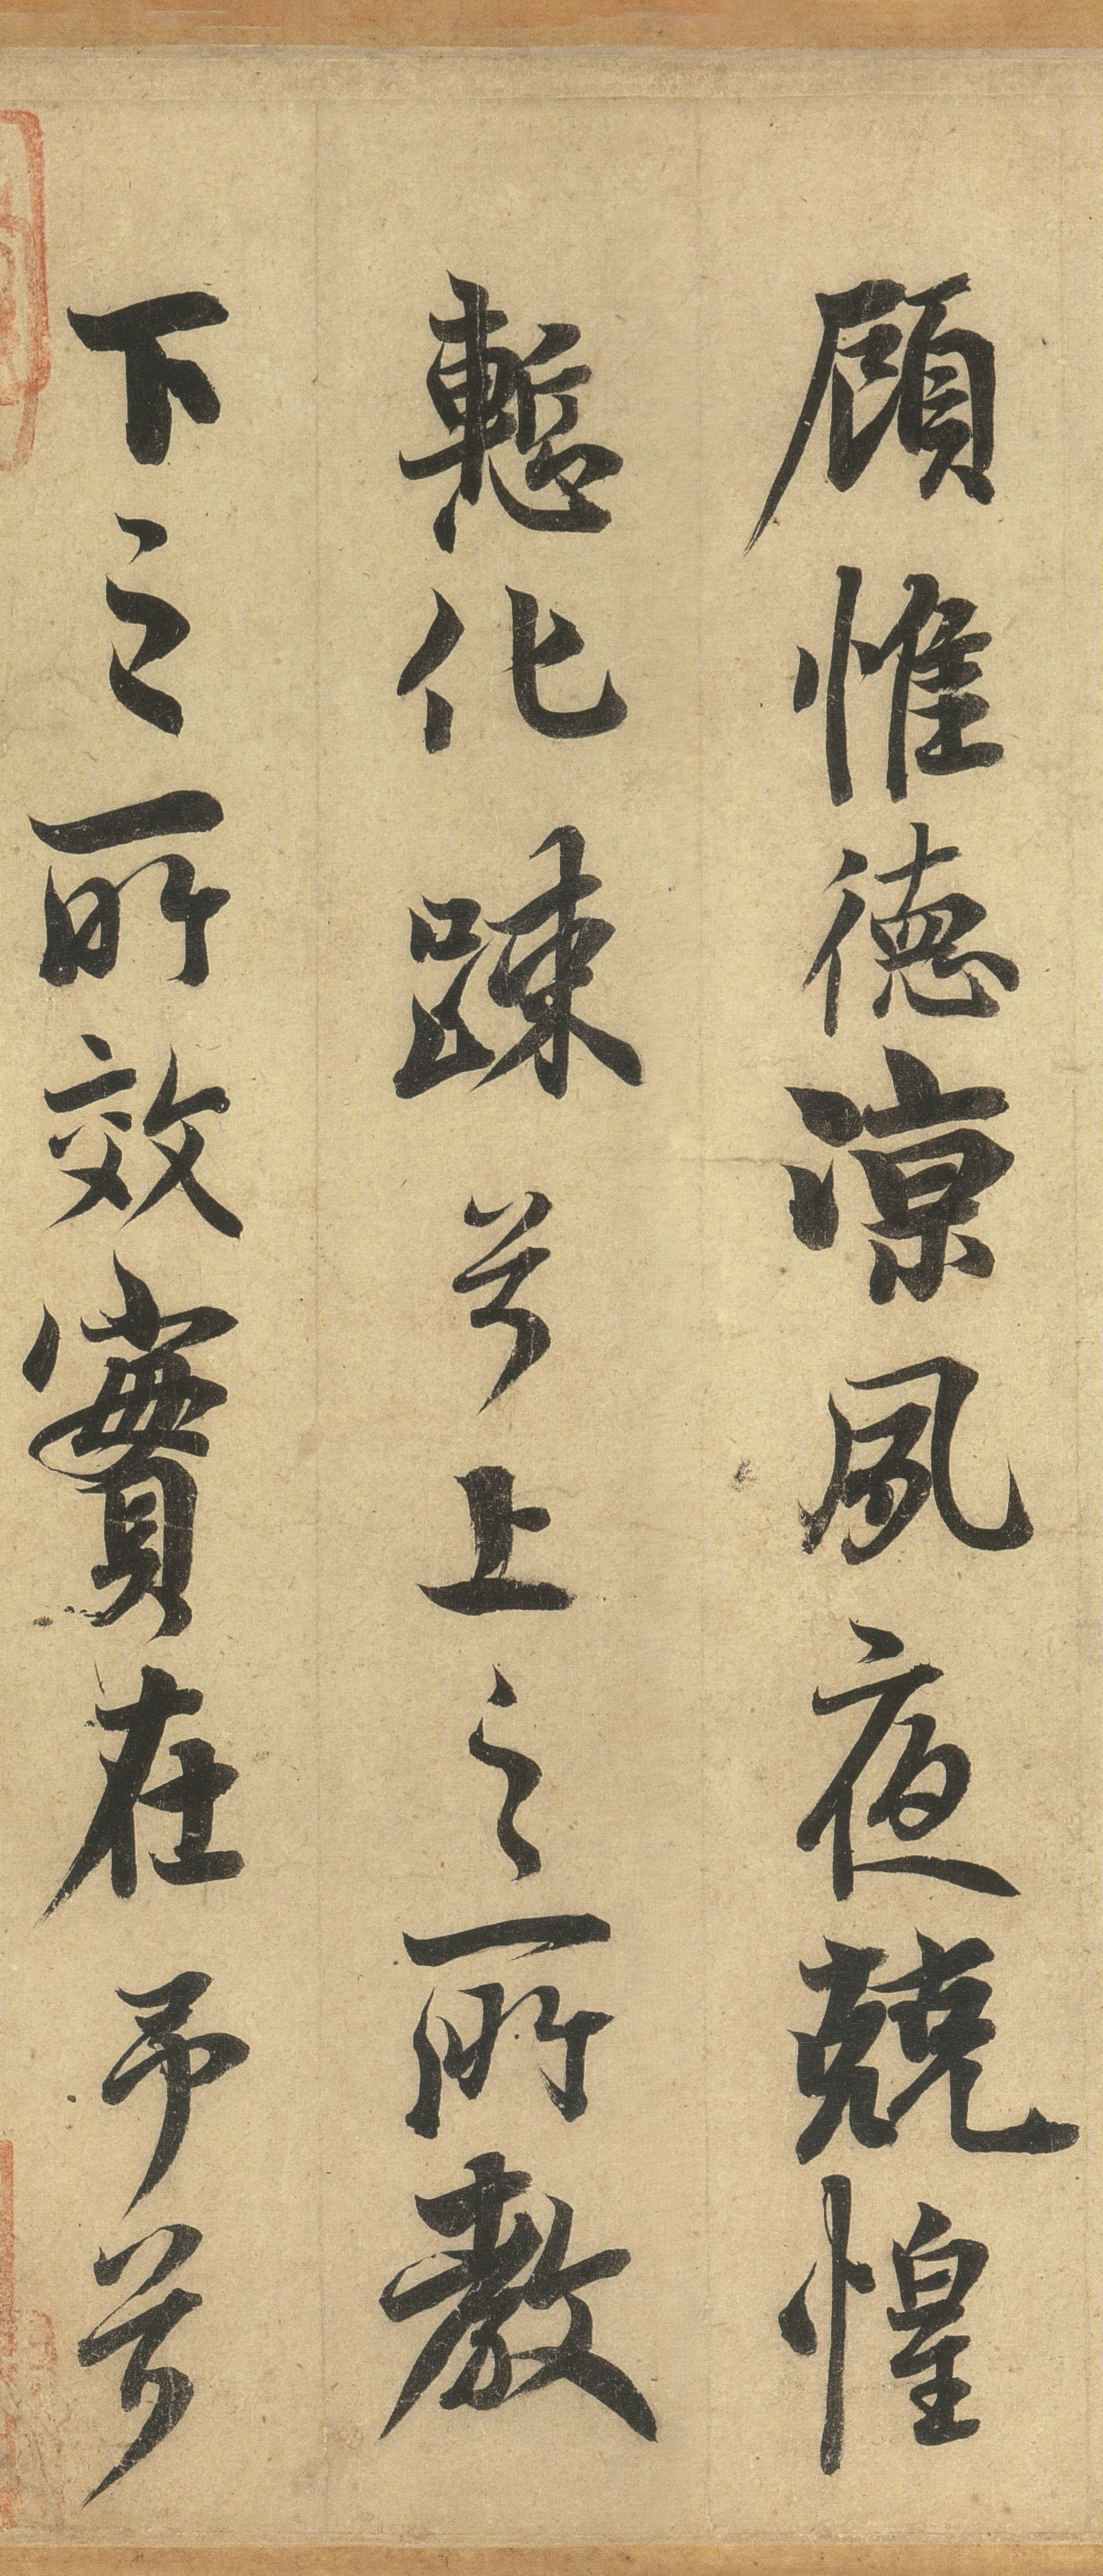 顧惟德涼夙夜兢惶
慙化踈兮上之所教
下之所效實在予兮